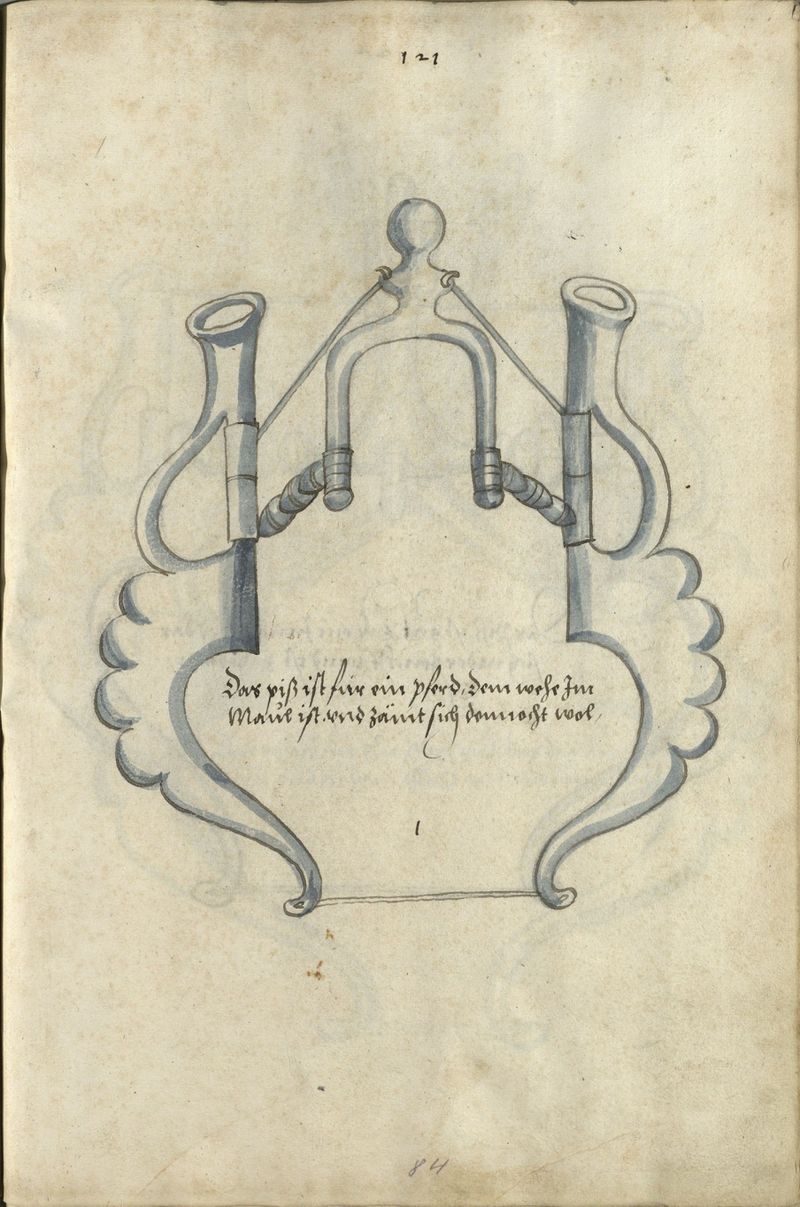 121
Das piß ist fur ein pferd, dem wehe Im
Maul ist, und zämt sich dennocht wol,
1
84